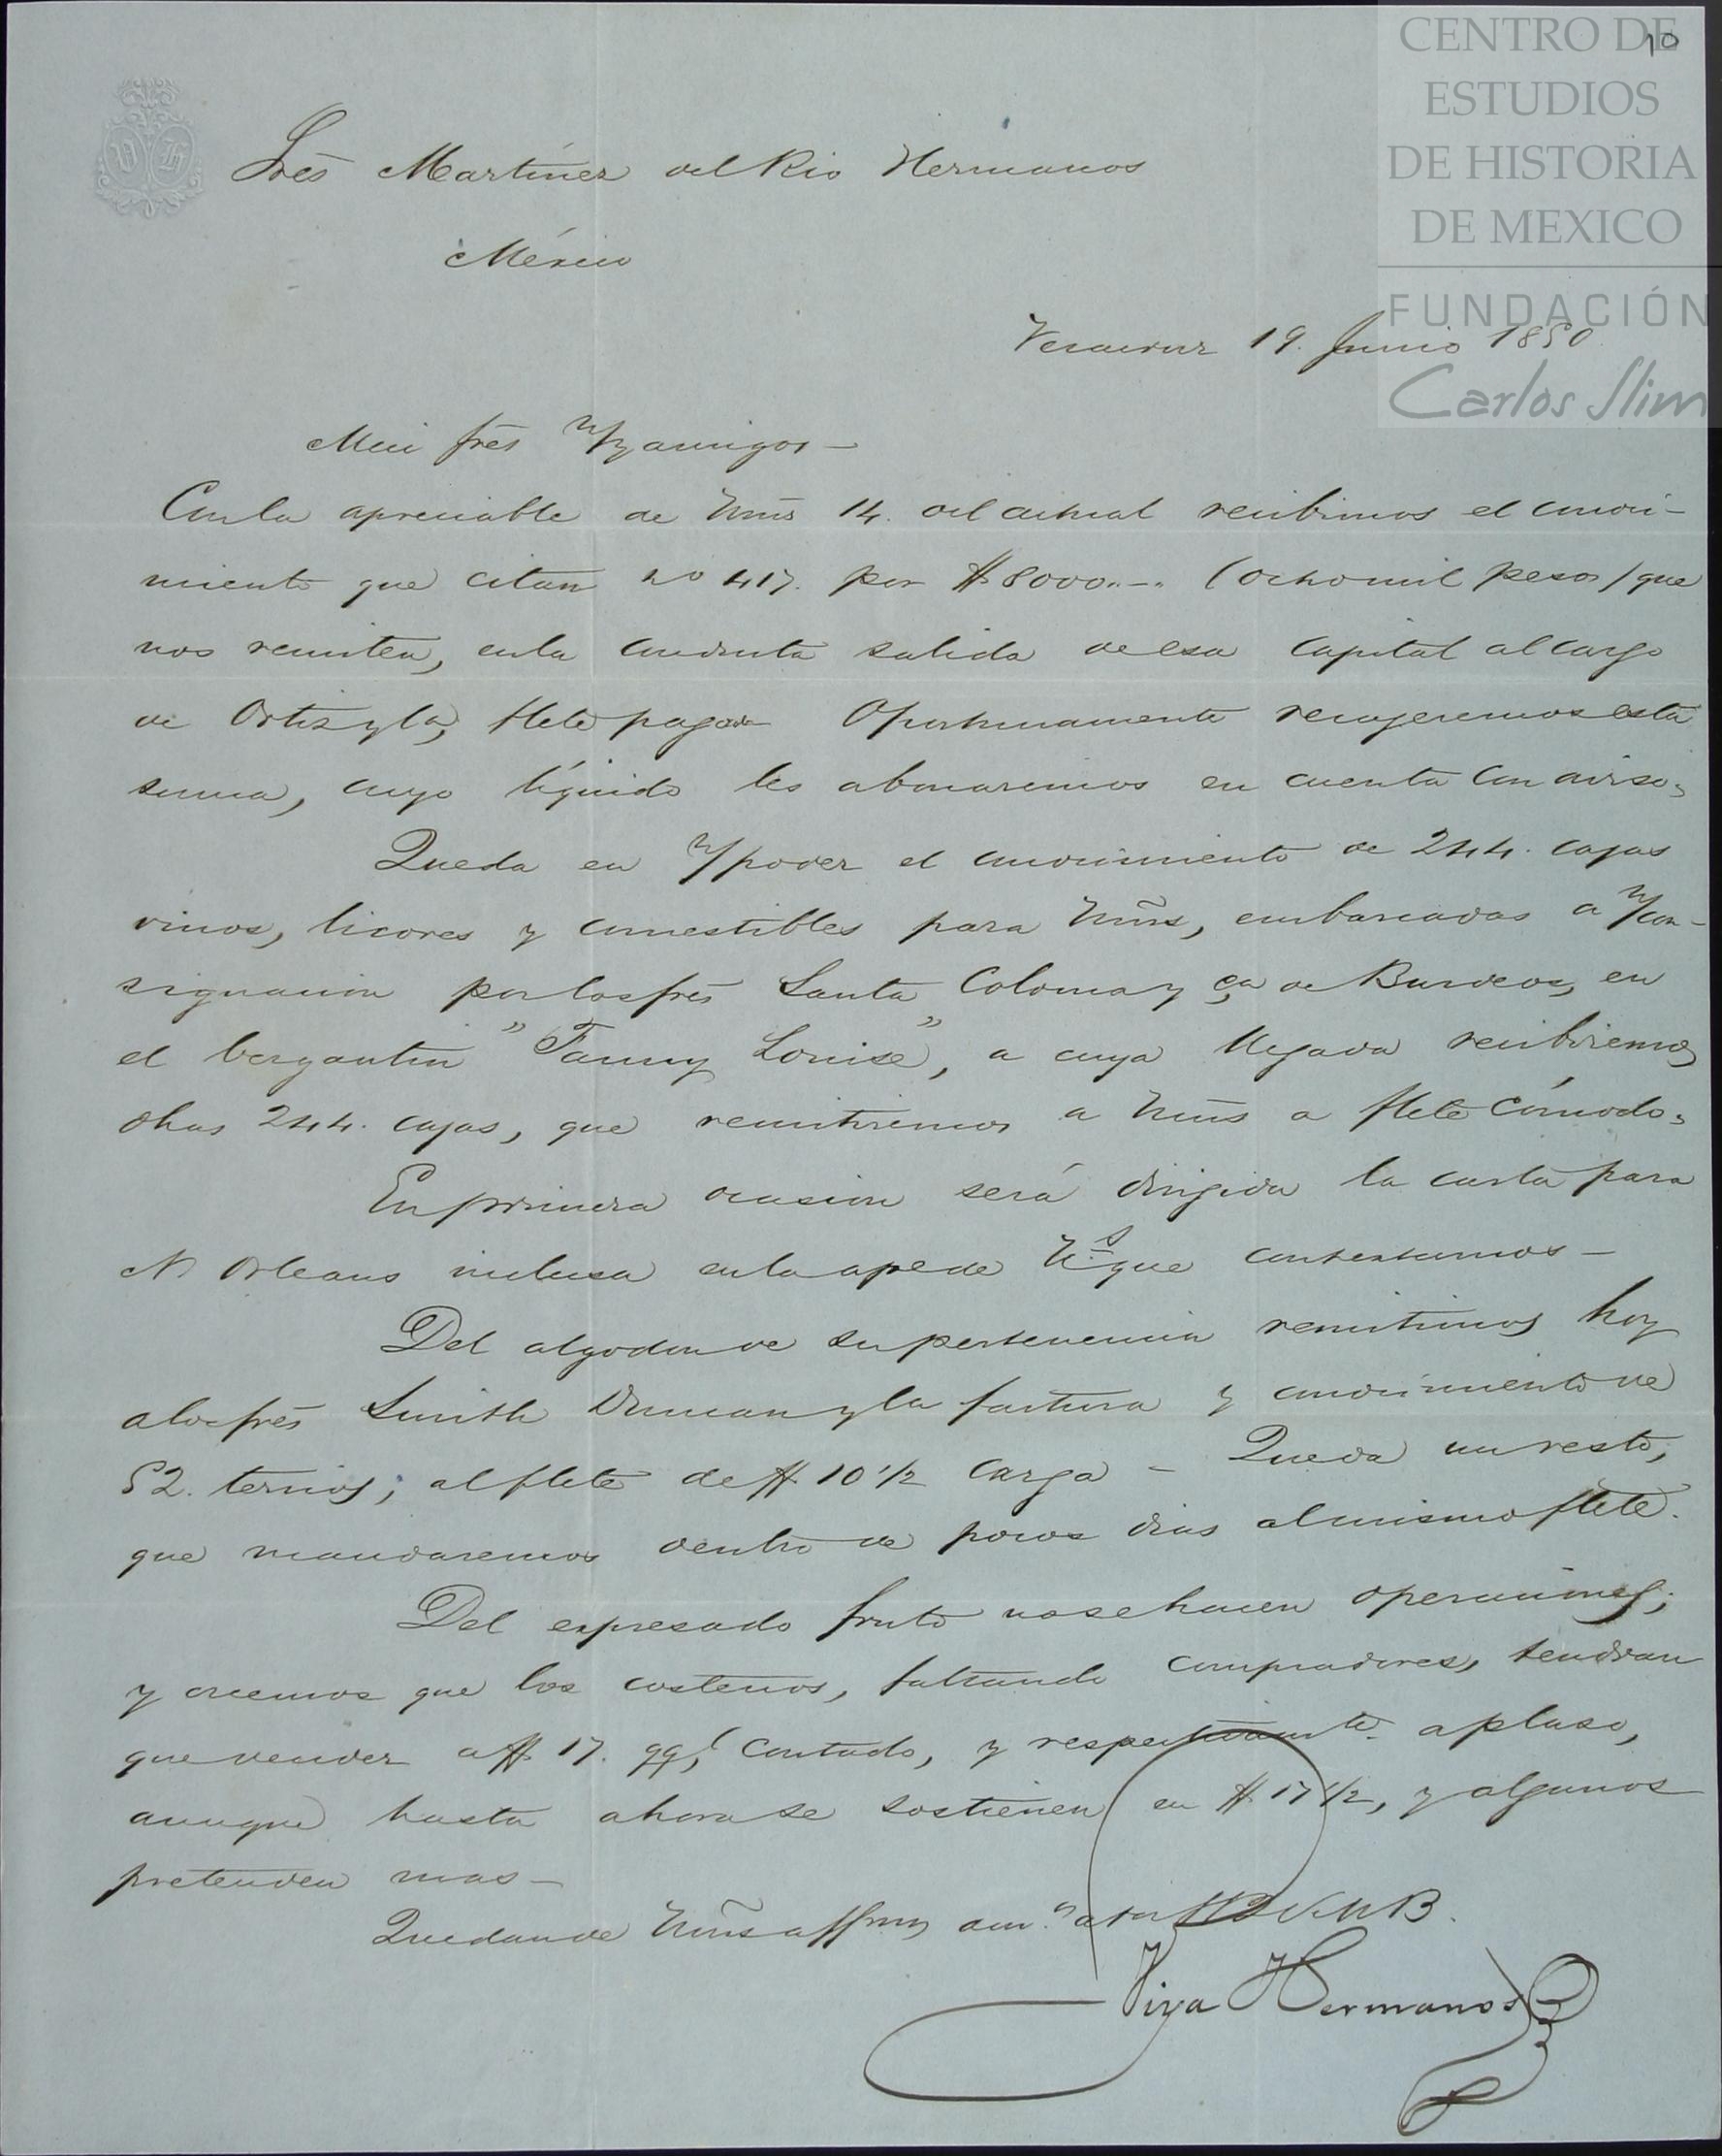 10
CENTRO DE
ESTUDIOS
DE HISTORIA
DE MEXICO
FUNDACIÓN
Carlos Slim
V H
Sres Martinez del Rio Hermanos
México
Veracruz 19. Junio 1850.
Mui sres n/ y amigos –
Con la apreciable de Vms 14. del actual recibimos el conoci-
miento que citan no 417. por $8000.-. (ocho mil pesos) que
nos remiten, en la conducta salida de esa capital al cargo
de Ortiz y Ca, flete pagado Oportunamente recogeremos esta
suma, cuyo líquido les abonaremos en cuenta con aviso.
Queda en n/ poder el conocimiento de 244. cajas
vinos, licores y comestibles para Vms, embarcadas a n/ con-
signacion por los sres Santa Coloma y Ca de Burdeos, en
el bergantin "Fanny Louise", a cuya llegada recibiremos
dhas 244. cajas, que remitiremos a Vms a flete cómodo.
En primera ocasion será dirigida la carta para
N Orleans inclusa en la ape de Vs que contestamos –
Del algodon de su pertenencia remitimos hoy
a los sres Smith Duncan y Ca factura y conocimiento de
52. tercios; al flete de $10 1/2 carga – Queda un resto,
que mandaremos dentro de pocos dias al mismo flete.
Del expresado fruto no se hacen operaciones;
y creemos que los costeños, faltando compradores, tendran
que vender a $17. qql contado, y respectivamte a plaso,
aunque hasta ahora se sostienen en $17 1/2, y algunos
pretenden mas –
Quedan de Vms affmos am.s Q B S M B.
Viya Hermanos